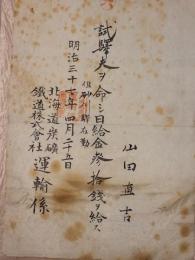 山田直吉
試驛夫ヲ命シ日給金参拾銭ヲ給ス
但砂川驛在勤
明治三十七年四月二十五日
北海道炭礦
鐵道株式會社 運輸係